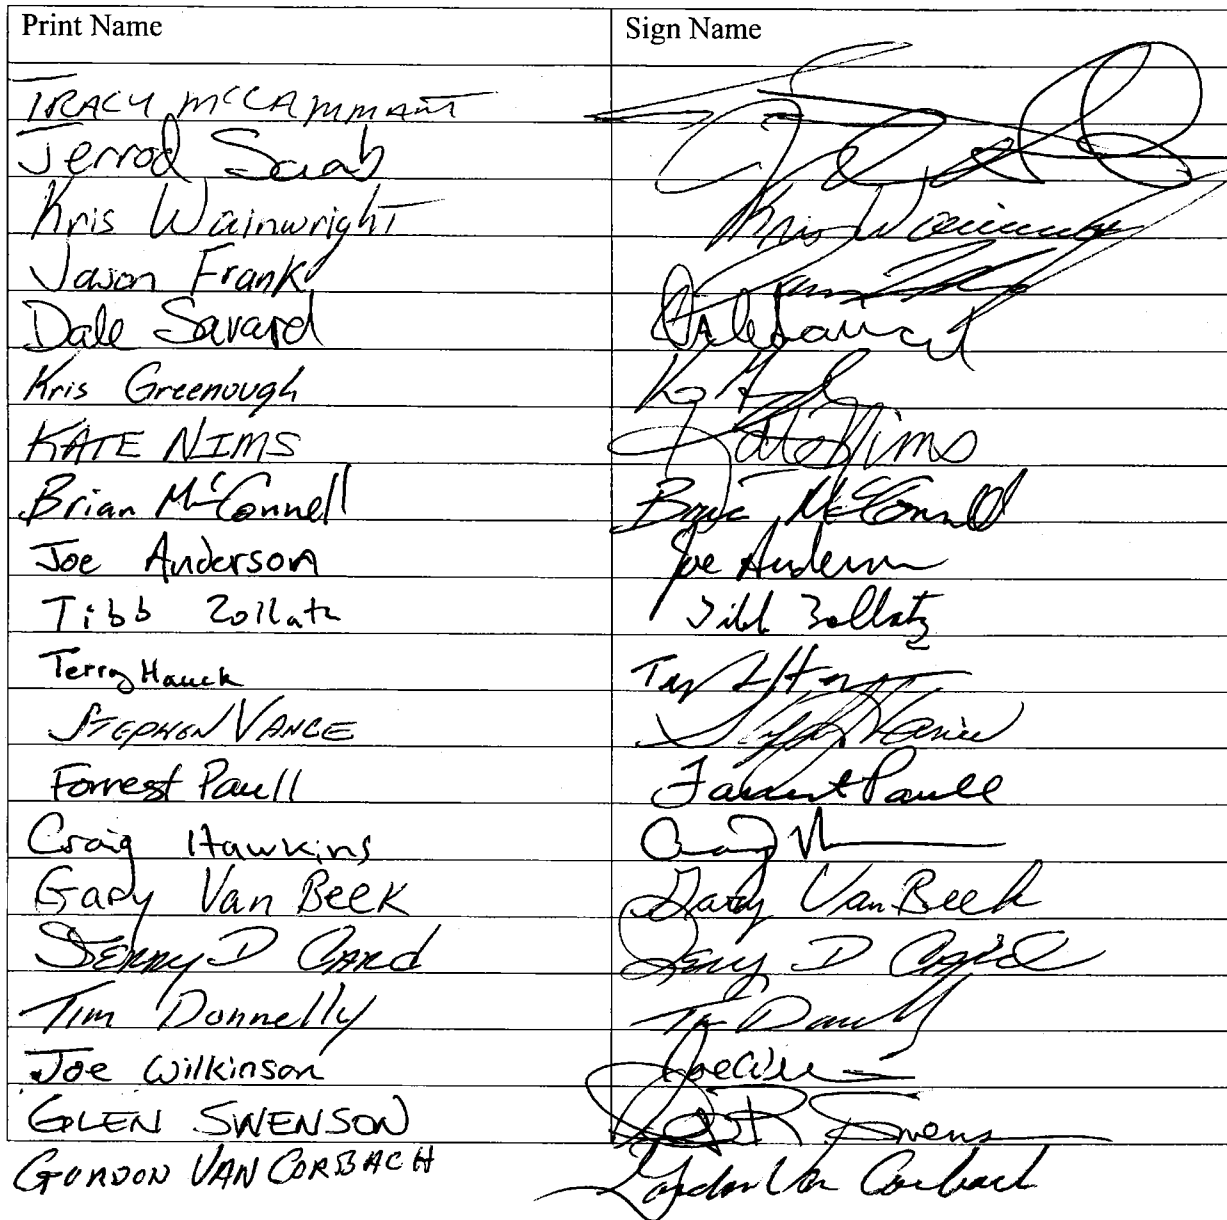 Print Name Sign Name
TRACY McCAMMANT
Jerrod Saab
Kris Wainwright Kris Wainwright
Jason Frank
Dale Savard Dale Savard
Kris Greenough
KATE NIMS Kate Nims
Brian McConnell Brian McConnell
Joe Anderson Joe Anderson
Tibb Zollatz Tibb Zollatz
Terry Hauck
STEPHEN VANCE
Forrest Paull Forrest Paull
Craig Hawkins Craig
Gary Van Beek Gary Van Beek
JERRY D CARD Jerry D Card
Tim Donnelly
Joe Wilkinson Joe
GLEN SWENSON
GORDON VAN CORBACH Gordon Van Corbach